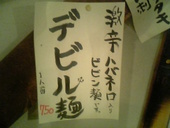 激辛
ハバネロ入り
ビビン麺です
デビル麺
1人前
750